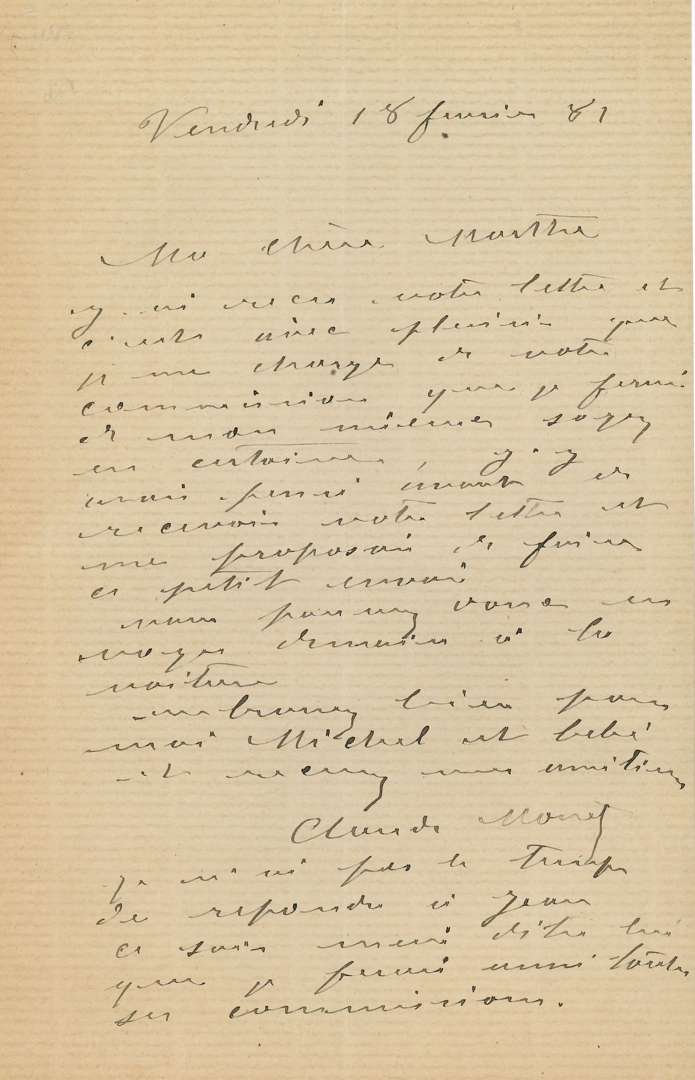 Vendredi 18 fevrier 81
Ma chère Marthe
j'ai recu votre lettre et
c'est avec plaisir que
je me charge de votre
commission que je ferai
de mon mieux soyez
en certaine, j'y
avais pensé avant de
recevoir votre lettre et
me proposai de faire
ce petit envoi
vous pourrez en
voyer demain à la
voiture
embrassez bien pour
moi Michel et bébé
et recevez mes amitiés
Claude Monet
je n'ai pas le temps
de repondre à Jean
ce soir mais dites lui
que je ferai aussi toutes
ses commissions.